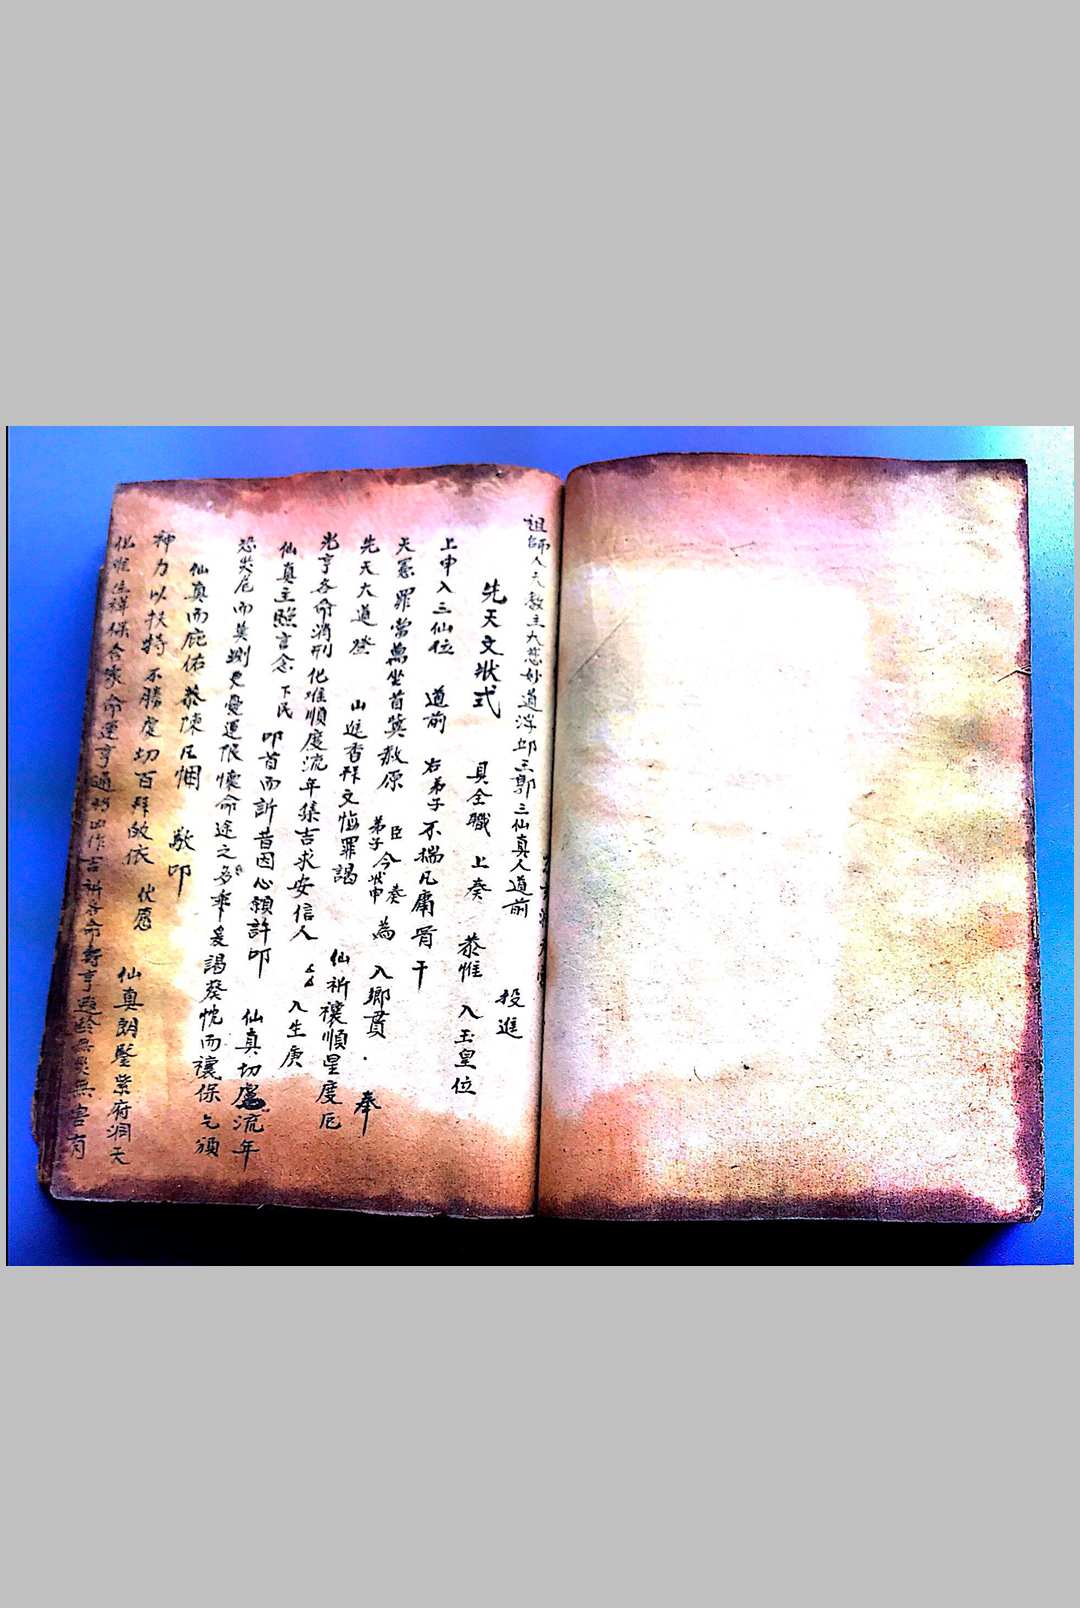 祖師天教主大慈妙道浮邱王郭三仙真人道前 投進
先天文狀式 具全職 上奏 恭惟 入玉皇位
上申入三仙位 道前 右弟子不揣凡庸骨干
天憲罪當萬坐首冀教原 臣 弟子 今 奏 狀申 為 入鄉貫
先天大道登 山進香拜文悔罪謁 奉
光亨各命消刑化难順度流年集吉求安信人 仙祈禳順星度厄
仙真主照言念 下民 叩首而訴昔因心願許叩 入生庚
恐災厄而莫測更憂運限懷命途之多乖爰謁 仙真切慮流年
仙真而庇佑恭陳凡悃 敬叩 葵忱而禳保乞頒
神力以扶持不勝虔切百拜皈依 伏愿
化难生祥保合家命運亨通 作吉祈各命 仙真朗鑒紫府洞天
無災無害有